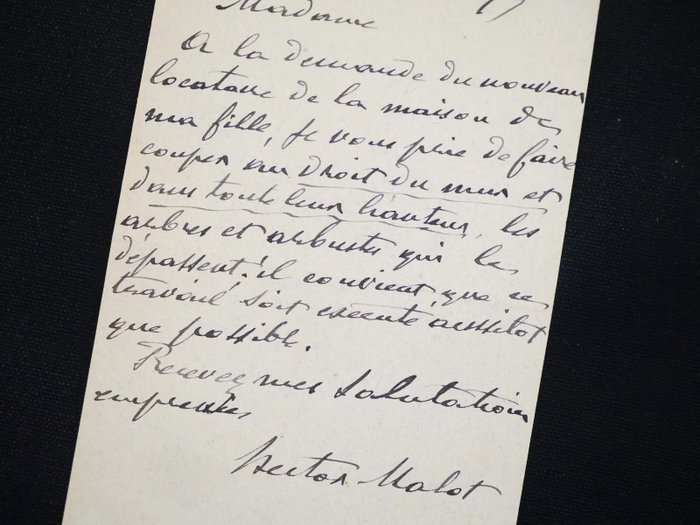 Madame
A la demande du nouveau
locataire de la maison de
ma fille, je vous prie de faire
couper au droit du mur et
dans toute leur hauteur, les
arbres et arbustes qui le
dépassent. il convient que ce
travail soit exécuté aussitot
que possible.
Recevez mes salutations
empressées
Hector Malot